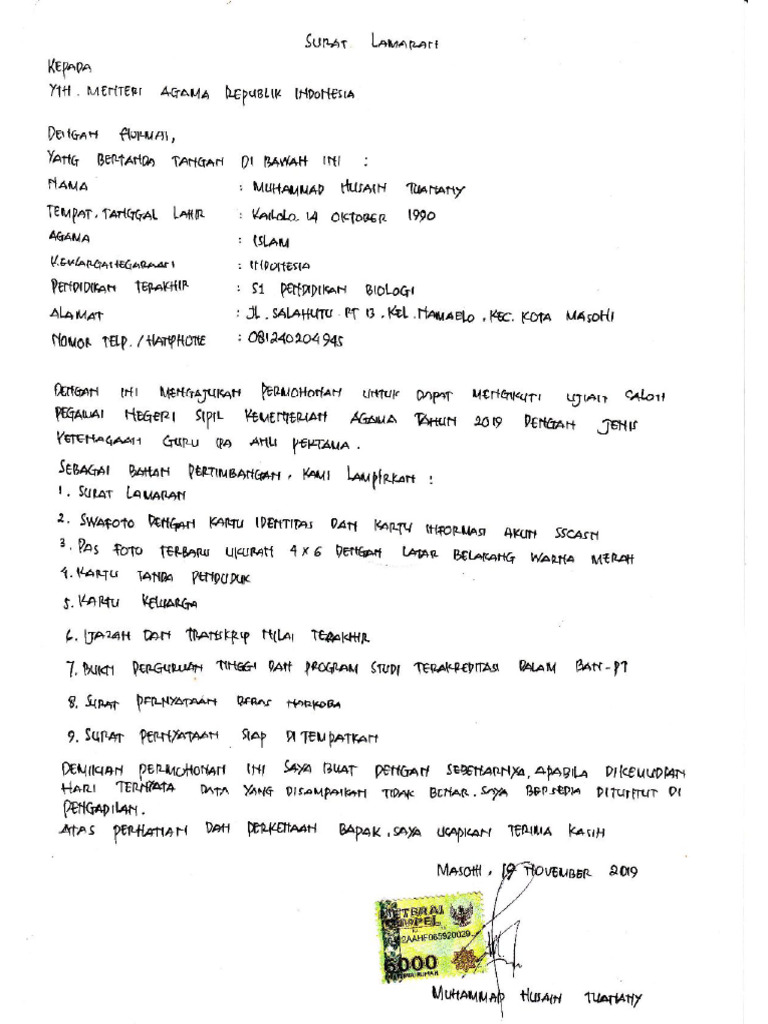 SURAT LAMARAN
KEPADA
YTH. MENTERI AGAMA REPUBLIK INDONESIA
DENGAN HORMAT,
YANG BERTANDA TANGAN DI BAWAH INI :
NAMA : MUHAMMAD HUSAIN TUANANY
TEMPAT, TANGGAL LAHIR : KAILOLO, 14 OKTOBER 1990
AGAMA : ISLAM
KEWARGANEGARAAN : INDONESIA
PENDIDIKAN TERAKHIR : S1 PENDIDIKAN BIOLOGI
ALAMAT : JL. SALAHUTU RT 13, KEL. NAMAELO, KEC. KOTA MASOHI
NOMOR TELP. / HANPHONE : 081240204945
DENGAN INI MENGAJUKAN PERMOHONAN UNTUK DAPAT MENGIKUTI UJIAN CALON
PEGAWAI NEGERI SIPIL KEMENTERIAN AGAMA TAHUN 2019 DENGAN JENIS
KETENAGAAN GURU IPA AHLI PERTAMA.
SEBAGAI BAHAN PERTIMBANGAN, KAMI LAMPIRKAN :
1. SURAT LAMARAN
2. SWAFOTO DENGAN KARTU IDENTITAS DAN KARTU INFORMASI AKUN SSCASN
3. PAS FOTO TERBARU UKURAN 4 x 6 DENGAN LATAR BELAKANG WARNA MERAH
4. KARTU TANDA PENDUDUK
5. KARTU KELUARGA
6. IJAZAH DAN TRANSKRIP NILAI TERAKHIR
7. BUKTI PERGURUAN TINGGI DAN PROGRAM STUDI TERAKREDITASI DALAM BAN-PT
8. SURAT PERNYATAAN BEBAS NARKOBA
9. SURAT PERNYATAAN SIAP DI TEMPATKAN
DEMIKIAN PERMOHONAN INI SAYA BUAT DENGAN SEBENARNYA, APABILA DIKEMUDIAN
HARI TERNYATA DATA YANG DISAMPAIKAN TIDAK BENAR, SAYA BERSEDIA DITUNTUT DI
PENGADILAN.
ATAS PERHATIAN DAN PERKENAAN BAPAK, SAYA UCAPKAN TERIMA KASIH
MASOHI, 19 NOVEMBER 2019
METERAI
TEMPEL
2AAHF065920029
6000
MUHAMMAD HUSAIN TUANANY